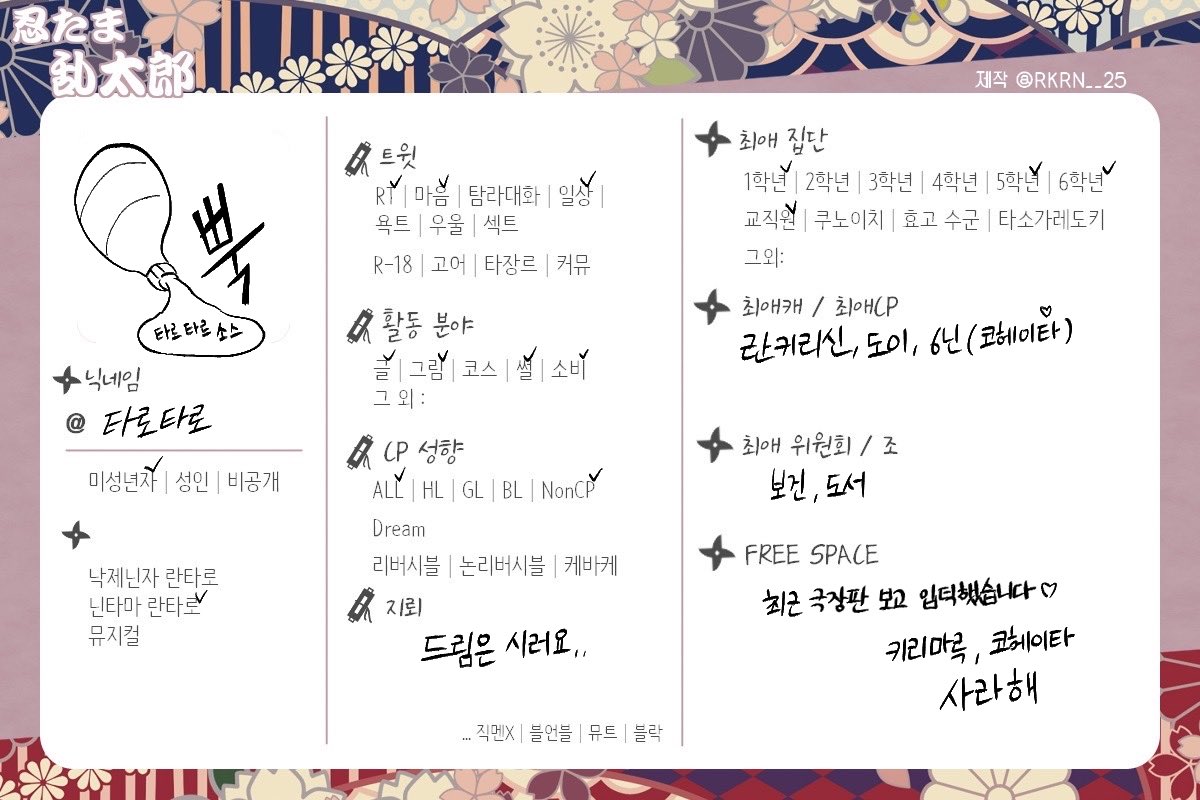 忍たま
乱太郎
제작 @RKRN__25
뿍
타르타르 소스
닉네임
@ 타로타로
미성년자 | 성인 | 비공개
낙제닌자 란타로
닌타마 란타로
뮤지컬
트윗
RT | 마음 | 탐라대화 | 일상 |
욕트 | 우울 | 섹트
R-18 | 고어 | 타장르 | 커뮤
활동 분야
글 | 그림 | 코스 | 썰 | 소비
그 외 :
CP 성향
ALL | HL | GL | BL | NonCP
Dream
리버시블 | 논리버시블 | 케바케
지뢰
드림은 시러요..
... 직멘X | 블언블 | 뮤트 | 블락
최애 집단
1학년 | 2학년 | 3학년 | 4학년 | 5학년 | 6학년
교직원 | 쿠노이치 | 효고 수군 | 타소가레도키
그외:
최애캐 / 최애CP
란키리신, 도이, 6닌 (코헤이타♡)
최애 위원회 / 조
보건, 도서
FREE SPACE
최근 극장판 보고 입덕했습니다♡
키리마루, 코헤이타
사라해